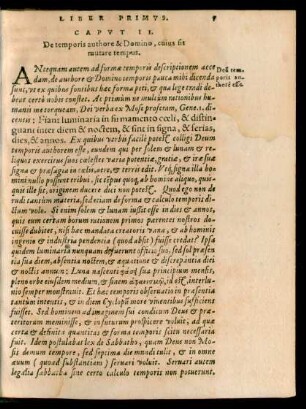 LIBER PRIMVS. 9
CAPVT II.
De temporis authore & Domino, cuius sit
mutare tempus.
ANtequam autem ad formam temporis descriptionem acce
dam, de authore & Domino temporis pauca mihi dicenda
sunt, vt ex quibus fontibus hæc forma peti, & qua lege tradi de-
beat certò nobis constet. Ac primùm ne multum rationibus hu-
manis insistamus, Dei verba ex Mose proferam, Gene. 1. di-
centis: Fiant luminaria in firmamento cœli, & distin-
guant inter diem & noctem, & sint in signa, & ferias,
dies, & annos. Ex quibus verbis facilè potest colligi Deum
temporis authorem esse, eundem qui per solem & lunam &
reliquos exercitus suos cælestes varia potentiæ, gratiæ, & iræ suæ
signa & præsagia in
nibus nullis possunt tribui, sic neque quoq; ab homine aliquo, quic
quid ille sit, originem ducere dici non potest. Quod ego non de
rudi tantùm materia, sed etiam de forma & calculo temporis di-
ctum volo. Si enim solem & lunam iussit esse in dies & annos,
quis eum certum horum rationem primos parentes nostros do-
cuisse dubitet, nisi hæc mandata creatoris vana, & ab hominis
ingenio & industria pendentia (quod absit) fuisse credat? Ipsa
quidem luminaria nunquam defuerunt officijs suis, sed sol præsen-
tia sua diem, absentia noctem, & æquatione & discrepantia diei
& noctis annum: Luna nascens
pleno orbe eiusdem medium, & eius
menses præfinierunt. Et hæc temporis obseruatio in præsen-
tiarum intentis, & in diem Cyclopū more viuentibus sufficiens
fuisset. Sed hominem ad imaginem sui conditum Deus & præ-
teritorum meminisse, & in futurum prospicere voluit, ad quæ
certa & definita quantitas & forma temporis scitu necessaria
fuit. Idem postulabat lex de Sabbatho, quam Deus non Mo-
sis demum tempore, sed septima die mundi tulit, & in omne
æuum (quoad substantiam) seruari voluit. Seruari autem
legalia sabbatha sine certo calculo temporis non potuerunt.
Deū tem-
poris au-
thorē esse.